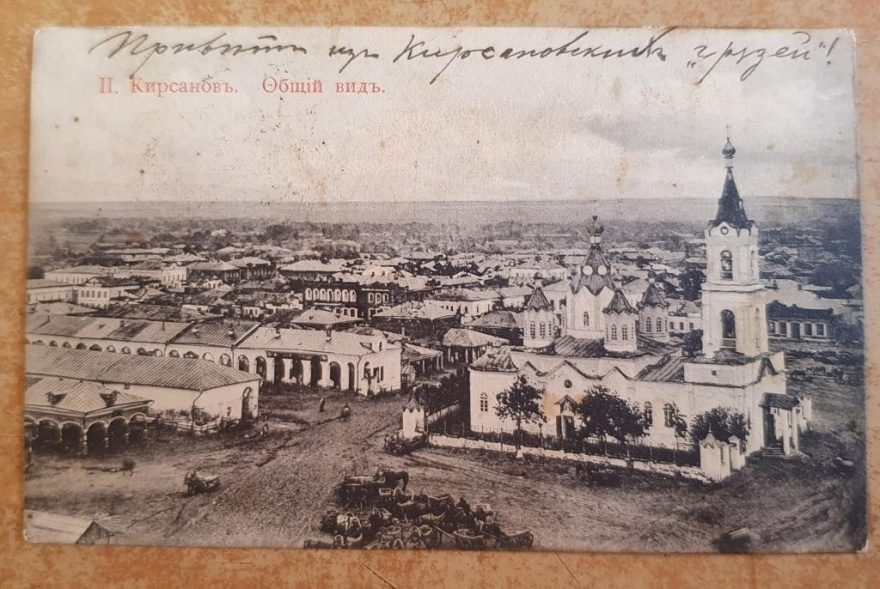 Привѣтъ изъ Кирсановскихъ „грузей"!
П. Кирсановъ. Общій видъ.